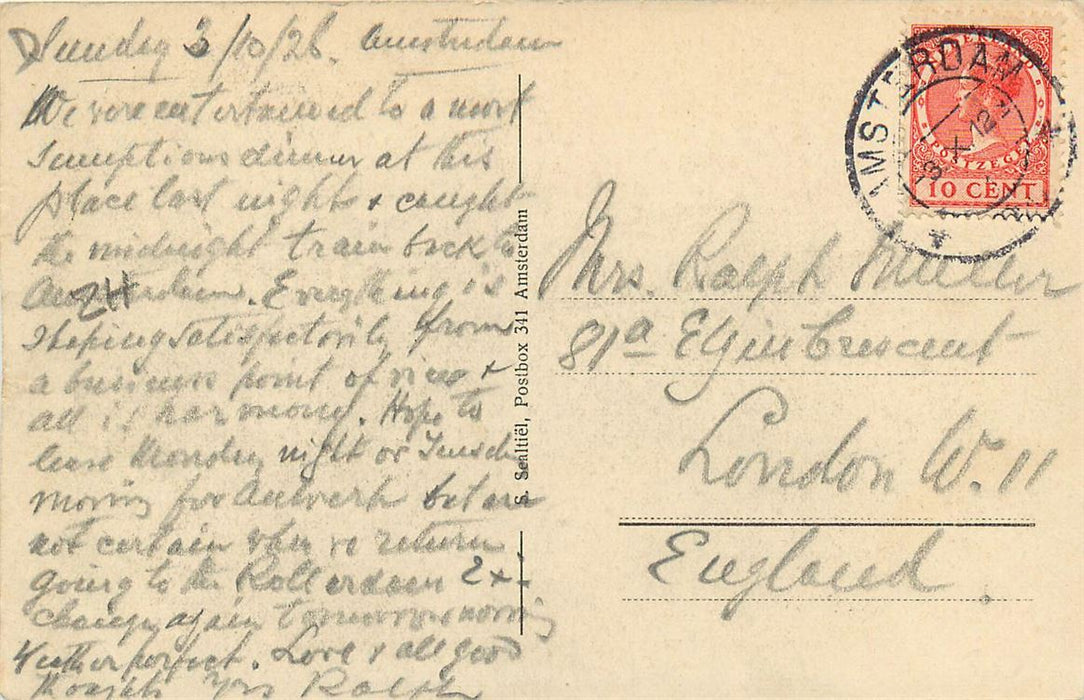 Sunday 3/10/26. Amsterdam
We were entertained to a most
Sumptious dinner at this
place last night & caught
the midnight train back to
Amsterdam. Everything is
Shaping Satisfactorily from
a business point of view &
all is harmony. Hope to
leave Monday night or Tuesday
morning for Antwerp but am
not certain when we return
Going to the Rotterdam Ex-
change again tomorrow morning
Weather perfect. Love & all good
thoughts Yrs Ralph
ZH
S. Sealtiël, Postbox 341 Amsterdam
NEDERLAND
POSTZEGEL
10 CENT
AMSTERDAM
3 X 12
Mrs. Ralph
81a Elgin Crescent
London W. 11
England.